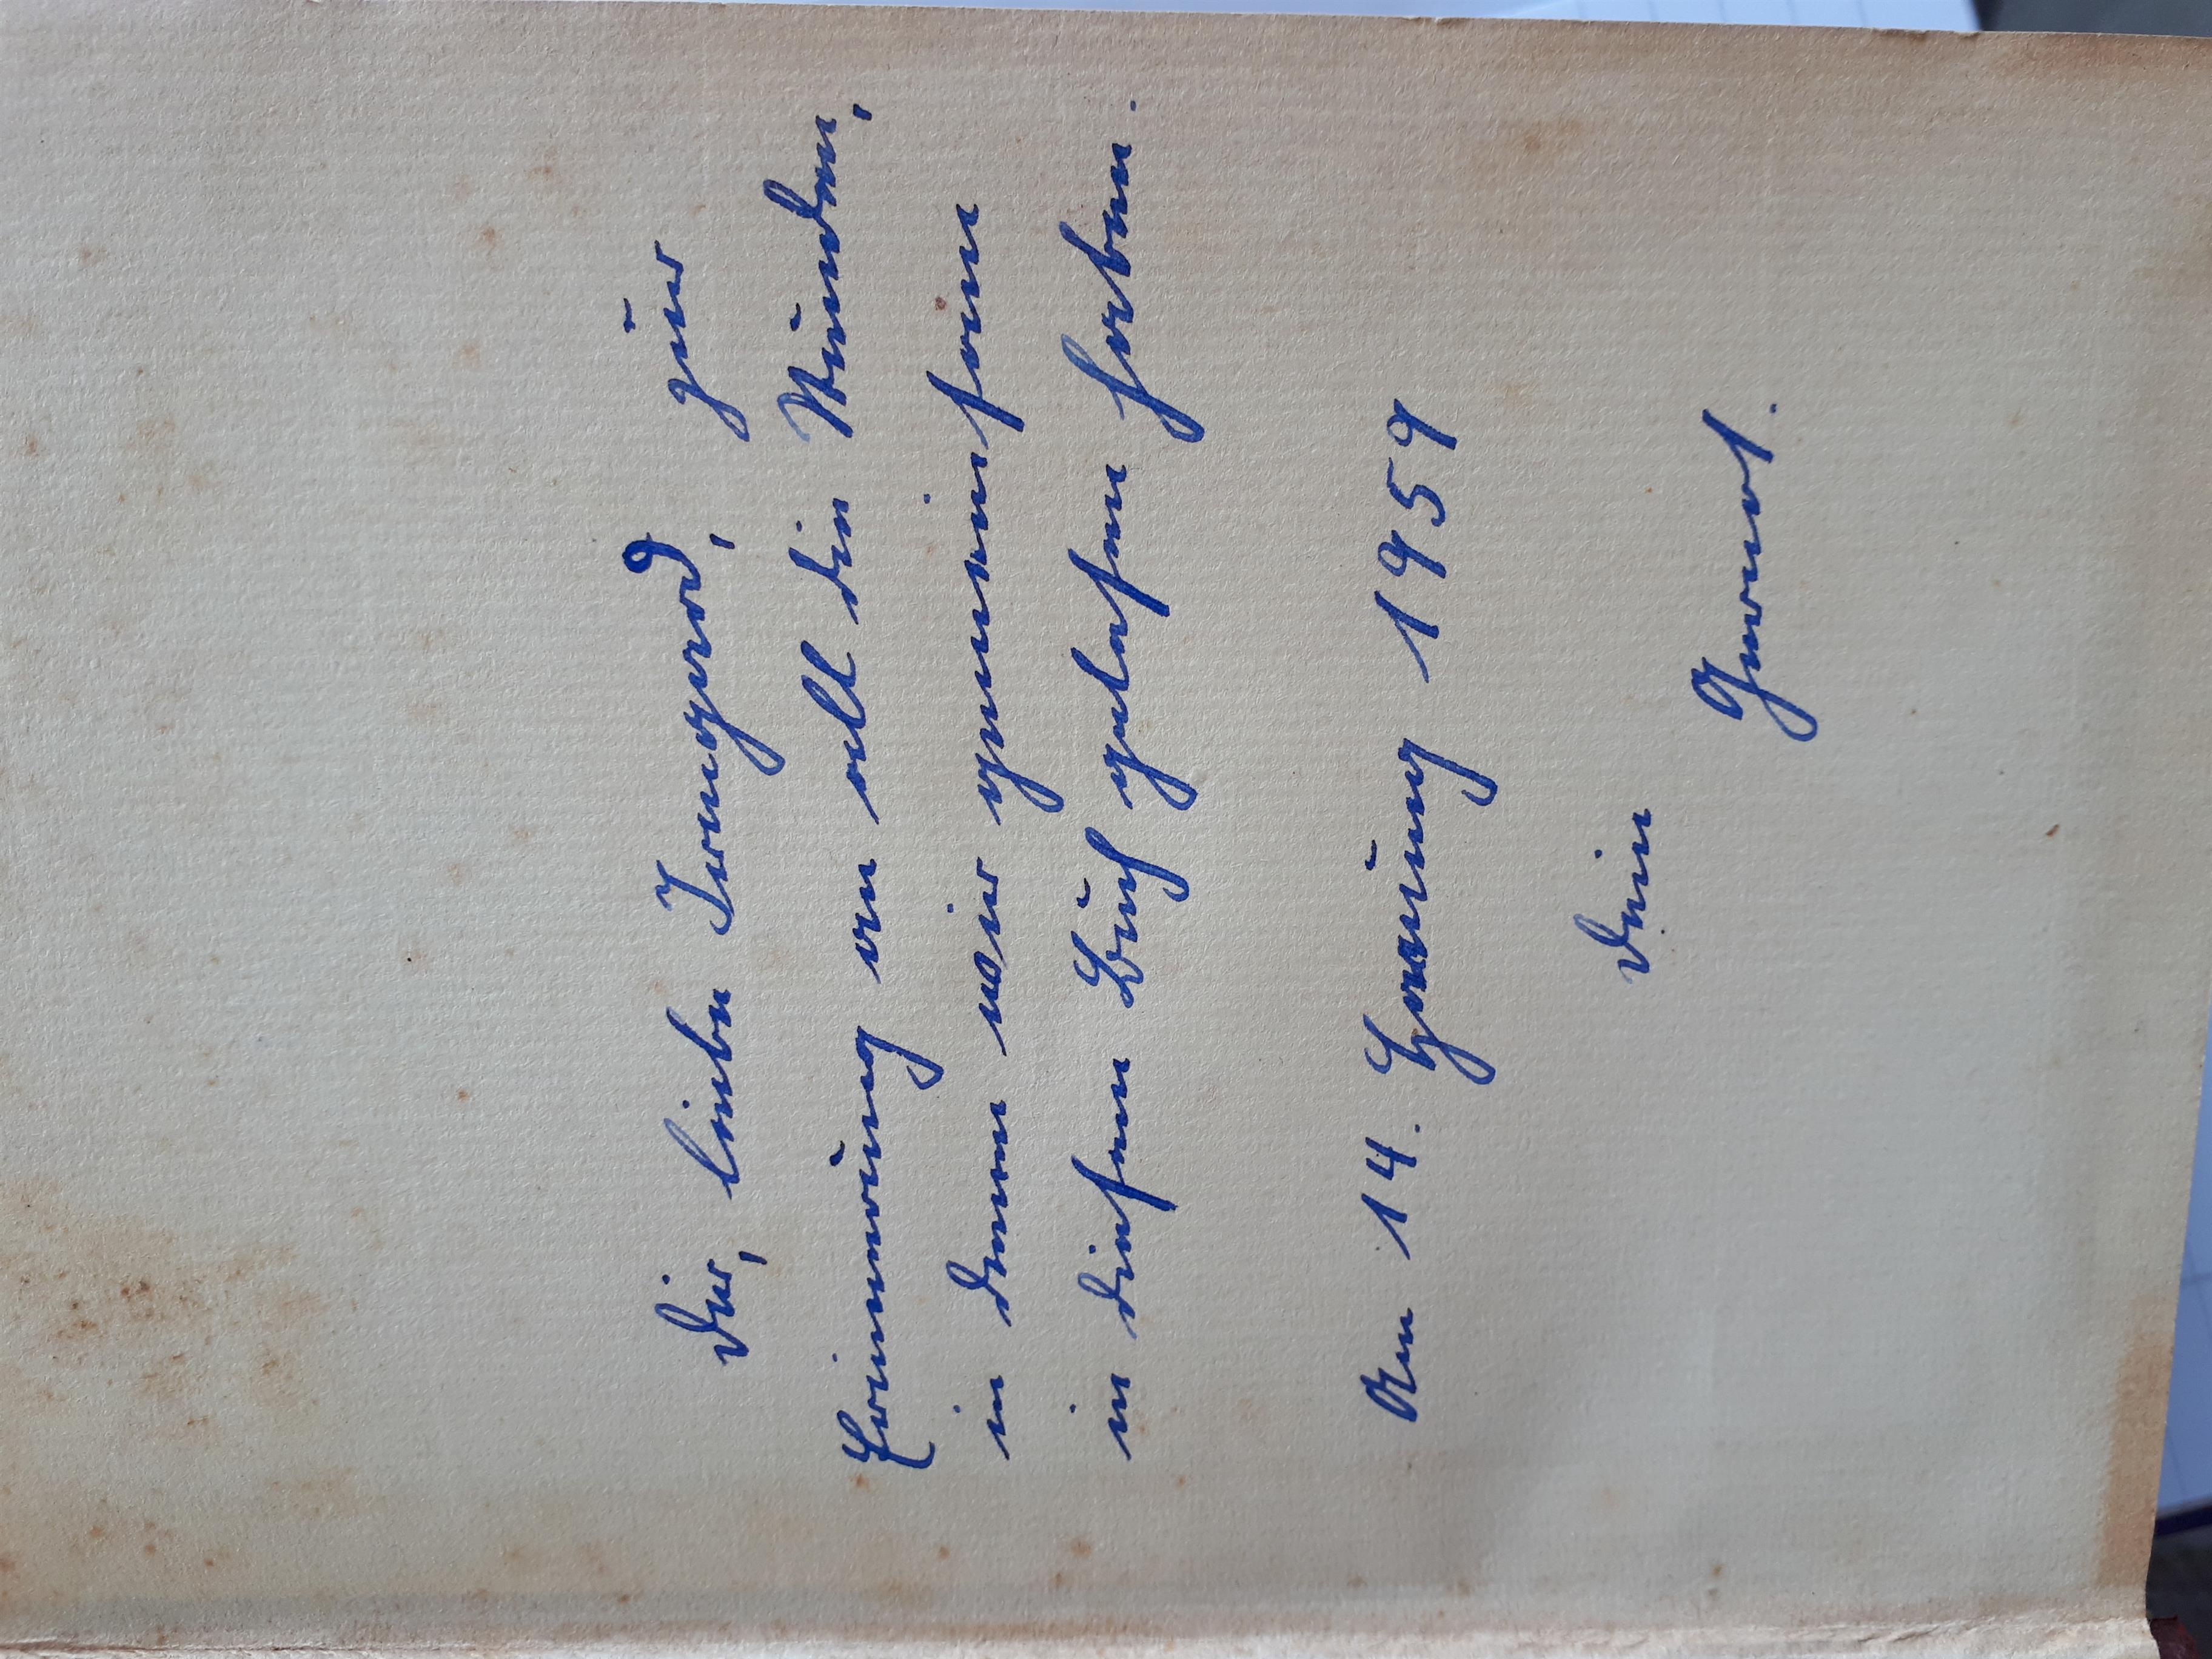 Dir, liebe Irmgard, zur
Erinnerung an all die Stunden,
in denen wir gemeinsam
in diesem Buch gelesen haben.
Am 14. Hornung 1959
Dein
Gernot.